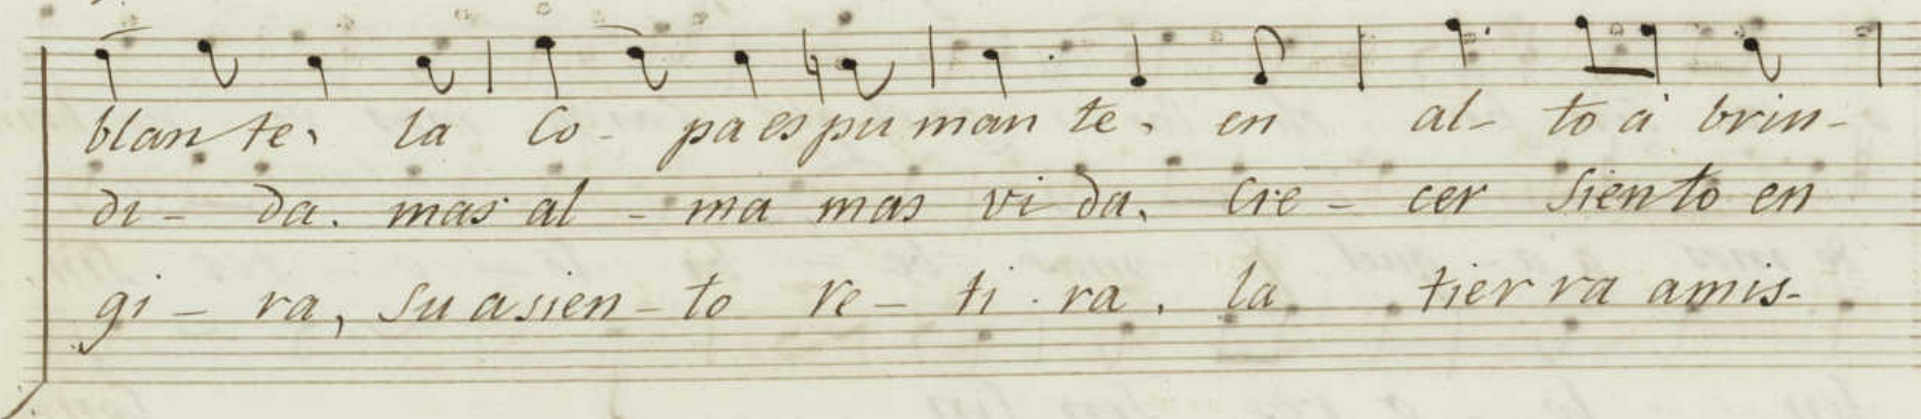 blan te, la Co- pa es pu man te, en al- to à brin-
di- da. mas al- ma mas vi da, Cre- cer siento en
gi- ra, Su asien- to re- ti. ra, la tier ra amis-